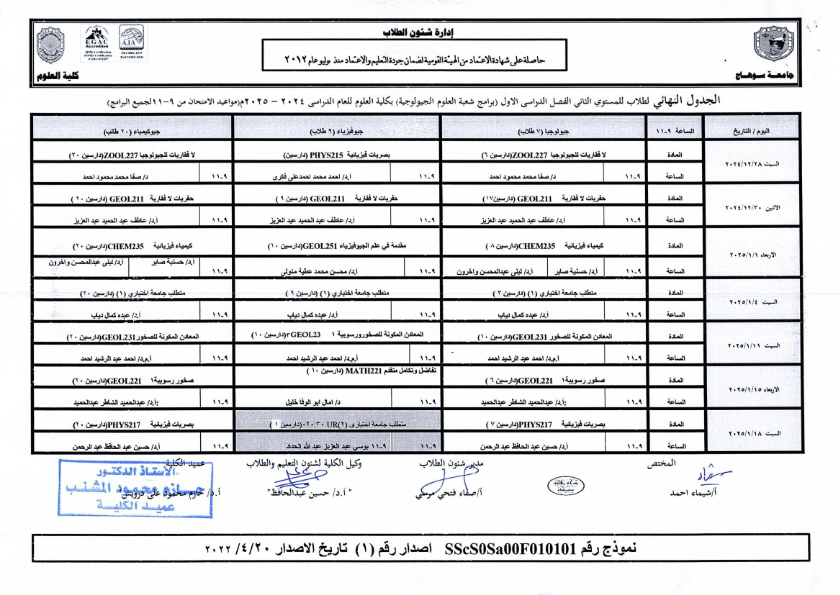 إدارة شئون الطلاب
حاصلة على شهادة الاعتماد من الهيئة القومية لضمان جودة التعليم والاعتماد منذ يوليو عام ٢٠١٢
EGAC
Accredited
AJA
كلية العلوم
جامعة سوهاج
الجدول النهائي لطلاب للمستوي الثاني الفصل الدراسى الاول (برامج شعبة العلوم الجيولوجية) بكلية العلوم للعام الدراسى ٢٠٢٤ - ٢٠٢٥م(مواعيد الامتحان من ٩-١١ لجميع البرامج)
اليوم / التاريخ الساعة ٩-١١ جيولوجيا (٧ طلاب) جيوفيزياء (٦ طلاب) جيوكيمياء (٢٠ طالب)
السبت ٢٠٢٤/١٢/٢٨
المادة لا فقاريات للجيولوجيا ZOOL227(دارسين ٦) بصريات فيزيائية PHYS215 (دارسين) لا فقاريات للجيولوجيا ZOOL227(دارسين ٢٠)
الساعة ٩-١١ د/ صفا محمد محمود احمد ٩-١١ أ.د/ احمد محمد احمدعلى فكرى ٩-١١ د/ صفا محمد محمود احمد
الاثنين ٢٠٢٤/١٢/٣٠
المادة حفريات لا فقارية GEOL211 (دارسين ١٧) حفريات لا فقارية GEOL211 (دارسين ٩) حفريات لا فقارية GEOL211 (دارسين ٢٠)
الساعة ٩-١١ أ.د/ عاطف عبد الحميد عبد العزيز ٩-١١ أ.د/ عاطف عبد الحميد عبد العزيز ٩-١١ أ.د/ عاطف عبد الحميد عبد العزيز
الاربعاء ٢٠٢٥/١/١
المادة كيمياء فيزيائية CHEM235(دارسين ٨) مقدمة في علم الجيوفيزياء GEOL251(دارسين ١٠) كيمياء فيزيائية CHEM235(دارسين ٢٠)
الساعة ٩-١١ أ.د/ حسنية صابر أ.د/ ليلى عبدالمحسن واخرون ٩-١١ أ.د/ محسن محمد عطية متولى ٩-١١ أ.د/ حسنية صابر أ.د/ ليلى عبدالمحسن واخرون
السبت ٢٠٢٥/١/٤
المادة متطلب جامعة اختياري (١) (دارسين ٣) متطلب جامعة اختياري (١) (دارسين ٩) متطلب جامعة اختياري (١) (دارسين ٢٠)
الساعة ٩-١١ أ.د/ عبده كمال دياب ٩-١١ أ.د/ عبده كمال دياب ٩-١١ أ.د/ عبده كمال دياب
السبت ٢٠٢٥/١/١١
المادة المعادن المكونة للصخور GEOL231(دارسين ١٠) المعادن المكونة للصخورورسوبية ١ GEOL23r(دارسين ١٠) المعادن المكونة للصخور GEOL231(دارسين ٢٠)
الساعة ٩-١١ أ.م.د/ احمد عبد الرشيد احمد ٩-١١ أ.م.د/ احمد عبد الرشيد احمد ٩-١١ أ.م.د/ احمد عبد الرشيد احمد
الاربعاء ٢٠٢٥/١/١٥
المادة صخور رسوبية١ GEOL221(دارسين ٦) تفاضل وتكامل متقدم MATH221 (دارسين ١٠) صخور رسوبية١ GEOL221(دارسين ٢٠)
الساعة ٩-١١ أ.د/ عبدالحميد الشاطر عبدالحميد ٩-١١ د/ امال ابو الوفا خليل ٩-١١ أ.د/ عبدالحميد الشاطر عبدالحميد
السبت ٢٠٢٥/١/١٨
المادة بصريات فيزيائية PHYS217(دارسين ٧) متطلب جامعة اختيارى (٢)UR ٢٠:٣٠-(دارسين ١) بصريات فيزيائية PHYS217(دارسين ٢٠)
الساعة ٩-١١ أ.د/ حسين عبد الحافظ عبد الرحمن ٩-١١ ٩-١١ يوسي عبد العزيز عبد الله الحداد ٩-١١ أ.د/ حسين عبد الحافظ عبد الرحمن
المختص مدير شئون الطلاب وكيل الكلية لشئون التعليم والطلاب عميد الكلية
أ/شيماء احمد أ/صفاء فتحي مرسي " أ.د/ حسين عبدالحافظ" أ.د/ حازم محمود على درويش
الأستاذ الدكتور
حازم محمود المشنب
عميد الكلية
نموذج رقم SScS0Sa00F010101 اصدار رقم (١) تاريخ الاصدار ٢٠/ ٤/ ٢٠٢٢